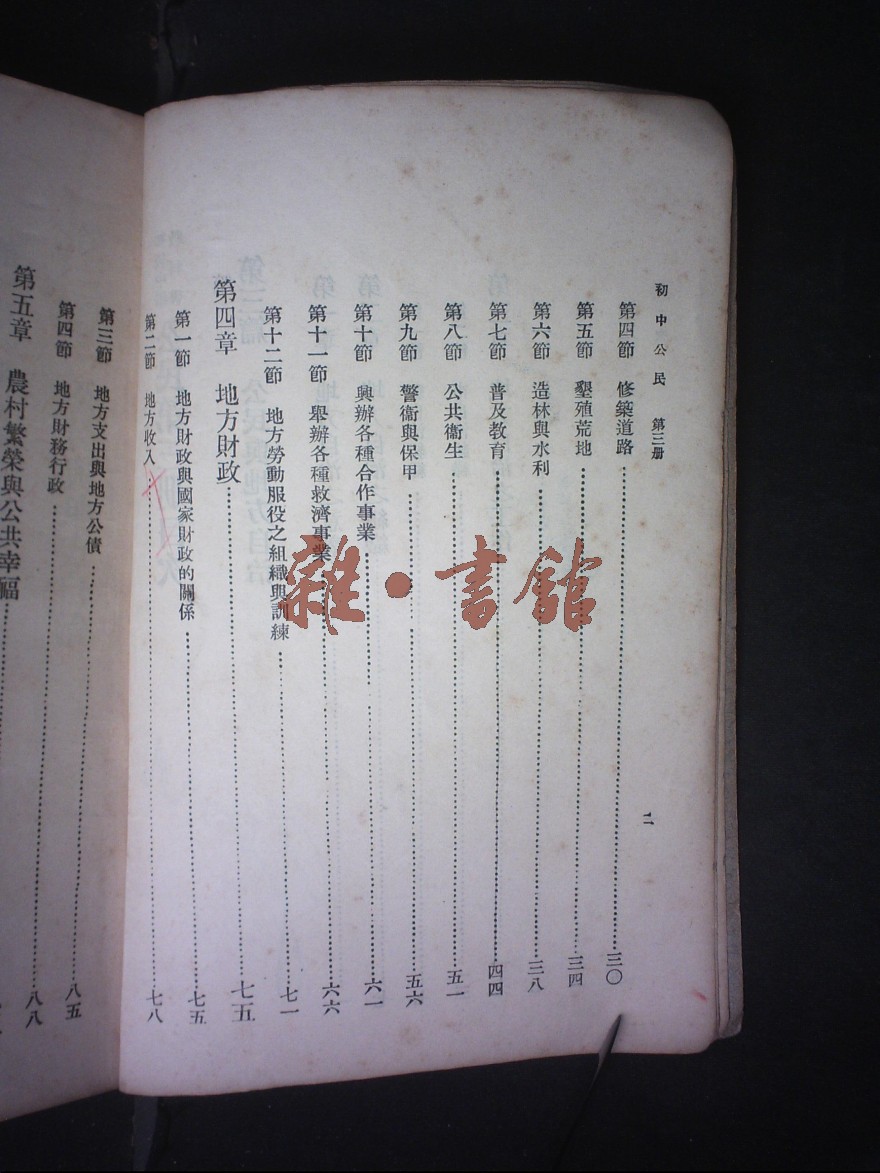 初中公民 第三册
二
第四節 修築道路……三〇
第五節 墾殖荒地……三四
第六節 造林與水利……三八
第七節 普及教育……四四
第八節 公共衞生……五一
第九節 警衞與保甲……五六
第十節 興辦各種合作事業……六一
第十一節 舉辦各種救濟事業……六六
第十二節 地方勞動服役之組織與訓練……七一
第四章 地方財政……七五
第一節 地方財政與國家財政的關係……七五
第二節 地方收入……七八
第三節 地方支出與地方公債……八五
第四節 地方財務行政……八八
第五章 農村繁榮與公共幸福……
雜·書館